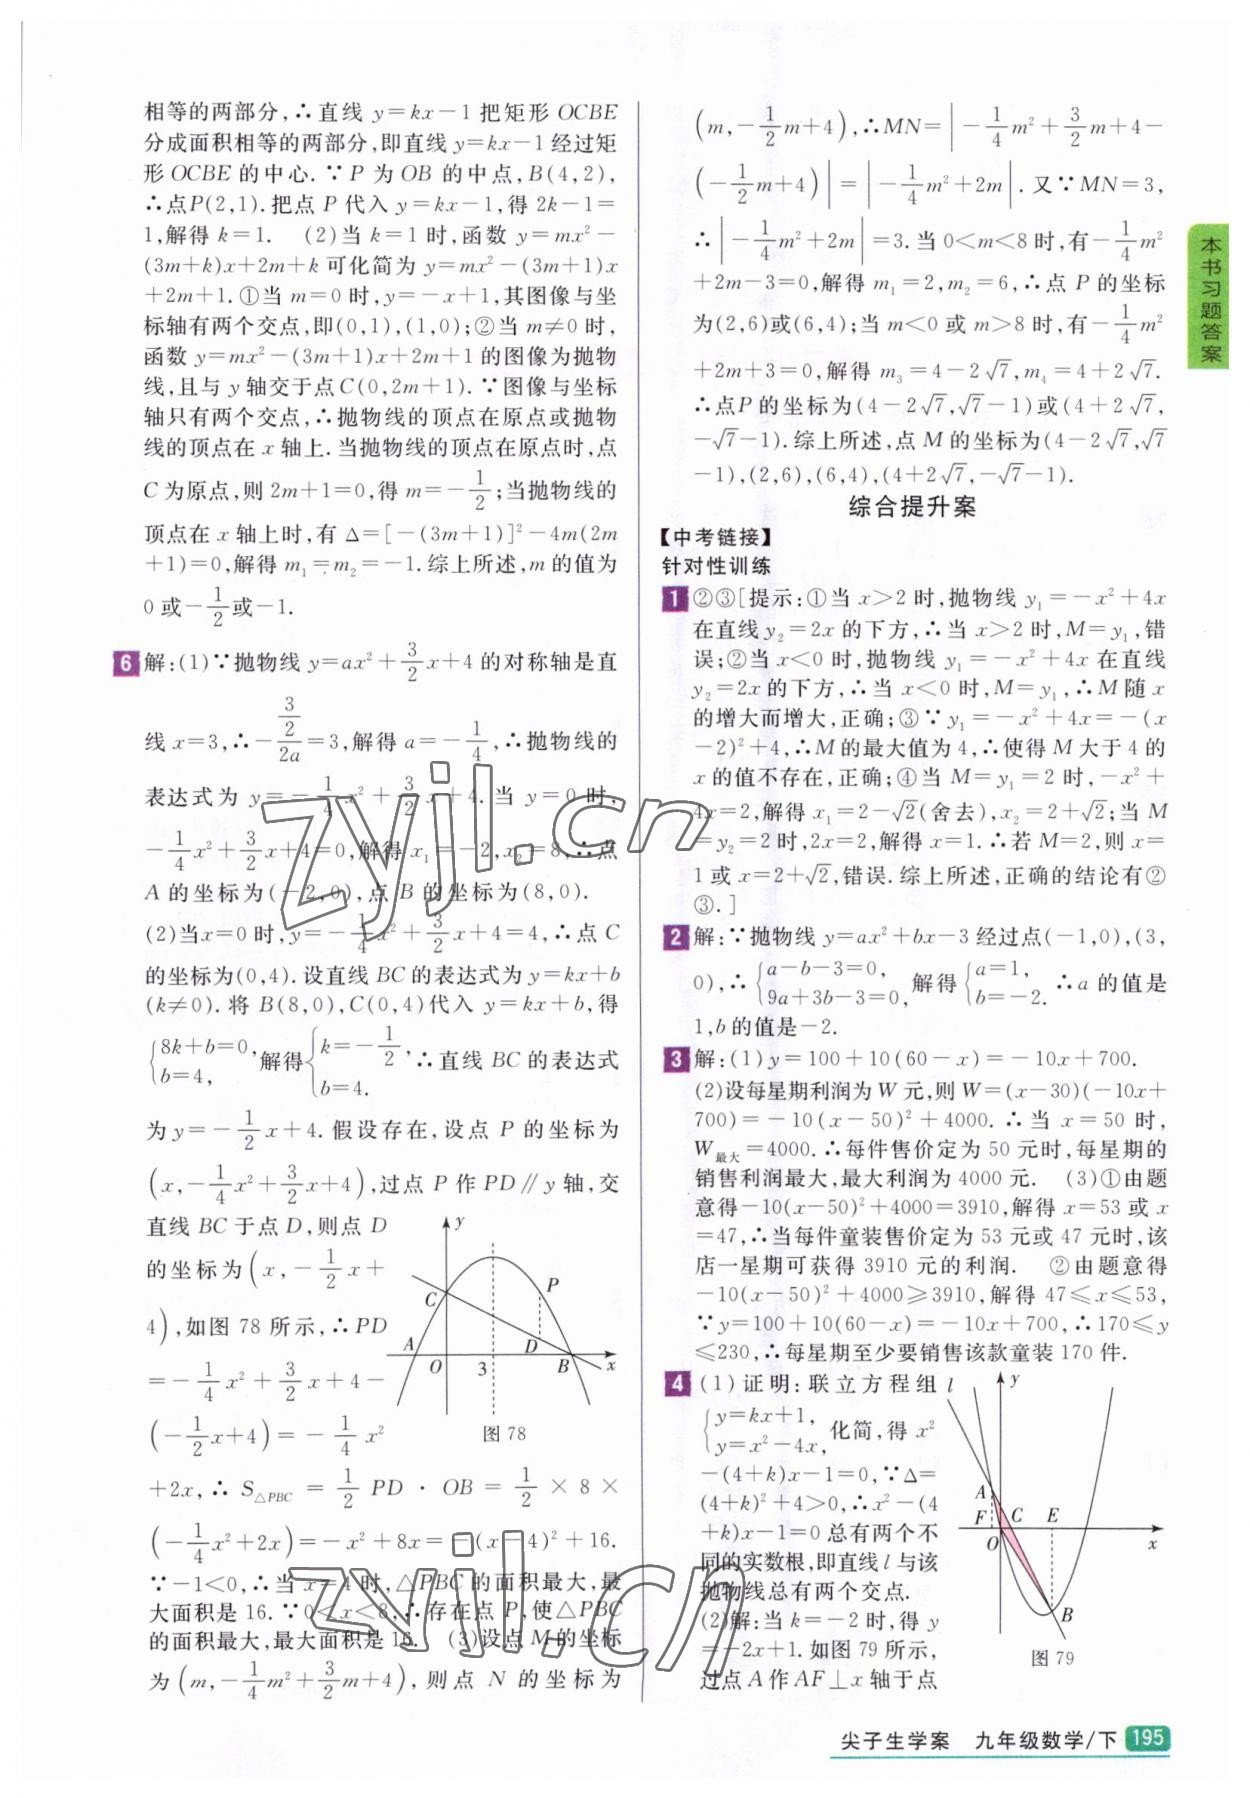 相等的两部分,∴直线 y=kx-1 把矩形 OCBE
分成面积相等的两部分,即直线 y=kx-1 经过矩
形 OCBE 的中心.∵P 为 OB 的中点,B(4,2),
∴点P(2,1).把点 P 代入 y=kx-1,得 2k-1=
1,解得 k=1. (2)当 k=1 时,函数 y=mx²-
(3m+k)x+2m+k 可化简为 y=mx²-(3m+1)x
+2m+1.①当 m=0 时,y=-x+1,其图像与坐
标轴有两个交点,即(0,1),(1,0);②当 m≠0 时,
函数 y=mx²-(3m+1)x+2m+1 的图像为抛物
线,且与 y 轴交于点C(0,2m+1).∵图像与坐标
轴只有两个交点,∴抛物线的顶点在原点或抛物
线的顶点在 x 轴上.当抛物线的顶点在原点时,点
C 为原点,则 2m+1=0,得 m=-1/2;当抛物线的
顶点在 x 轴上时,有 Δ=[-(3m+1)]²-4m(2m
+1)=0,解得 m₁=m₂=-1.综上所述,m 的值为
0 或-1/2或-1.
6 解:(1)∵抛物线 y=ax²+3/2x+4 的对称轴是直
线 x=3,∴-(3/2)/2a=3,解得 a=-1/4,∴抛物线的
表达式为 y=-1/4x²+3/2x+4.当 y=0 时,
-1/4x²+3/2x+4=0,解得 x₁=-2,x₂=8,∴点
A 的坐标为(-2,0),点 B 的坐标为(8,0).
(2)当x=0 时,y=-1/4x²+3/2x+4=4,∴点 C
的坐标为(0,4).设直线 BC 的表达式为 y=kx+b
(k≠0).将 B(8,0),C(0,4)代入 y=kx+b,得
{8k+b=0, b=4, 解得{k=-1/2, b=4. ∴直线 BC 的表达式
为 y=-1/2x+4.假设存在,设点 P 的坐标为
(x,-1/4x²+3/2x+4),过点 P 作 PD∥y 轴,交
直线 BC 于点 D,则点 D
的坐标为(x,-1/2x+
4),如图 78 所示,∴PD
=-1/4x²+3/2x+4-
(-1/2x+4)=-1/4x²
+2x,∴S△PBC=1/2PD·OB=1/2×8×
(-1/4x²+2x)=-x²+8x=-(x-4)²+16.
∵-1<0,∴当 x=4 时,△PBC 的面积最大,最
大面积是 16.∵0<x<8,∴存在点 P,使△PBC
的面积最大,最大面积是 16. (3)设点 M 的坐标
为(m,-1/4m²+3/2m+4),则点 N 的坐标为
y
P
C
A
O
3
D
B
x
图 78
(m,-1/2m+4),∴MN=|-1/4m²+3/2m+4-
(-1/2m+4)|=|-1/4m²+2m|.又∵MN=3,
∴|-1/4m²+2m|=3.当 0<m<8 时,有-1/4m²
+2m-3=0,解得 m₁=2,m₂=6,∴点 P 的坐标
为(2,6)或(6,4);当 m<0 或 m>8 时,有-1/4m²
+2m+3=0,解得 m₃=4-2√7,m₄=4+2√7.
∴点P 的坐标为(4-2√7,√7-1)或(4+2√7,
-√7-1).综上所述,点 M 的坐标为(4-2√7,√7
-1),(2,6),(6,4),(4+2√7,-√7-1).
综合提升案
【中考链接】
针对性训练
1 ②③[提示:①当 x>2 时,抛物线 y₁=-x²+4x
在直线 y₂=2x 的下方,∴当 x>2 时,M=y₁,错
误;②当 x<0 时,抛物线 y₁=-x²+4x 在直线
y₂=2x 的下方,∴当 x<0 时,M=y₁,∴M 随 x
的增大而增大,正确;③∵y₁=-x²+4x=-(x
-2)²+4,∴M 的最大值为 4,∴使得 M 大于 4 的
x 的值不存在,正确;④当 M=y₁=2 时,-x²+
4x=2,解得 x₁=2-√2(舍去),x₂=2+√2;当 M
=y₂=2 时,2x=2,解得 x=1.∴若 M=2,则 x=
1 或 x=2+√2,错误.综上所述,正确的结论有②
③.]
2 解:∵抛物线 y=ax²+bx-3 经过点(-1,0),(3,
0),∴{a-b-3=0, 9a+3b-3=0, 解得{a=1, b=-2. ∴a 的值是
1,b 的值是-2.
3 解:(1)y=100+10(60-x)=-10x+700.
(2)设每星期利润为 W 元,则 W=(x-30)(-10x+
700)=-10(x-50)²+4000.∴当 x=50 时,
W最大=4000.∴每件售价定为 50 元时,每星期的
销售利润最大,最大利润为 4000 元. (3)①由题
意得-10(x-50)²+4000=3910,解得 x=53 或 x
=47,∴当每件童装售价定为 53 元或 47 元时,该
店一星期可获得 3910 元的利润. ②由题意得
-10(x-50)²+4000≥3910,解得 47≤x≤53,
∵y=100+10(60-x)=-10x+700,∴170≤y
≤230,∴每星期至少要销售该款童装 170 件.
4 (1)证明:联立方程组
{y=kx+1, y=x²-4x, 化简,得 x²
-(4+k)x-1=0,∵Δ=
(4+k)²+4>0,∴x²-(4
+k)x-1=0 总有两个不
同的实数根,即直线 l 与该
抛物线总有两个交点.
(2)解:当 k=-2 时,得 y
=-2x+1.如图 79 所示,
过点 A 作 AF⊥x 轴于点
l
y
A
F
C
E
O
x
B
图 79
本书习题答案
zyjl.cn
zyjl.cn
尖子生学案 九年级数学/下 195